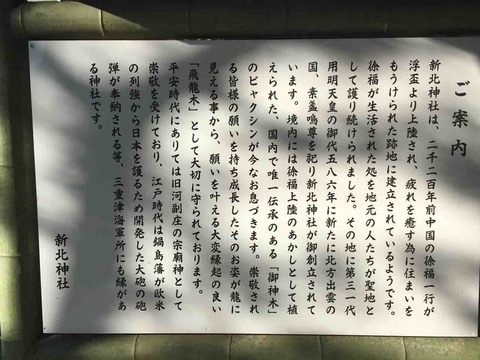 ご案内
新北神社は、二千二百年前中国の徐福一行が
浮盃より上陸され、疲れを癒す為に住まいを
もうけられた跡地に建立されているようです。
徐福が生活された処を地元の人たちが聖地と
して護り続けられました。その地に第三一代
用明天皇の御代五八六年に新たに北方出雲の
国、素盞嗚尊を祀り新北神社が御創立されて
います。境内には徐福上陸のあかしとして植
えられた、国内で唯一伝承のある「御神木」
のビャクシンが今なお息づきます。崇敬され
る皆様の願いを持ち成長したそのお姿が龍に
見える事から、願いを叶える大変縁起の良い
「飛龍木」として大切に守られております。
平安時代にありては旧河副庄の宗廟神として
崇敬を受けており、江戸時代は鍋島藩が欧米
の列強から日本を護るため開発した大砲の砲
弾が奉納される等、三重津海軍所にも縁があ
る神社です。
新北神社